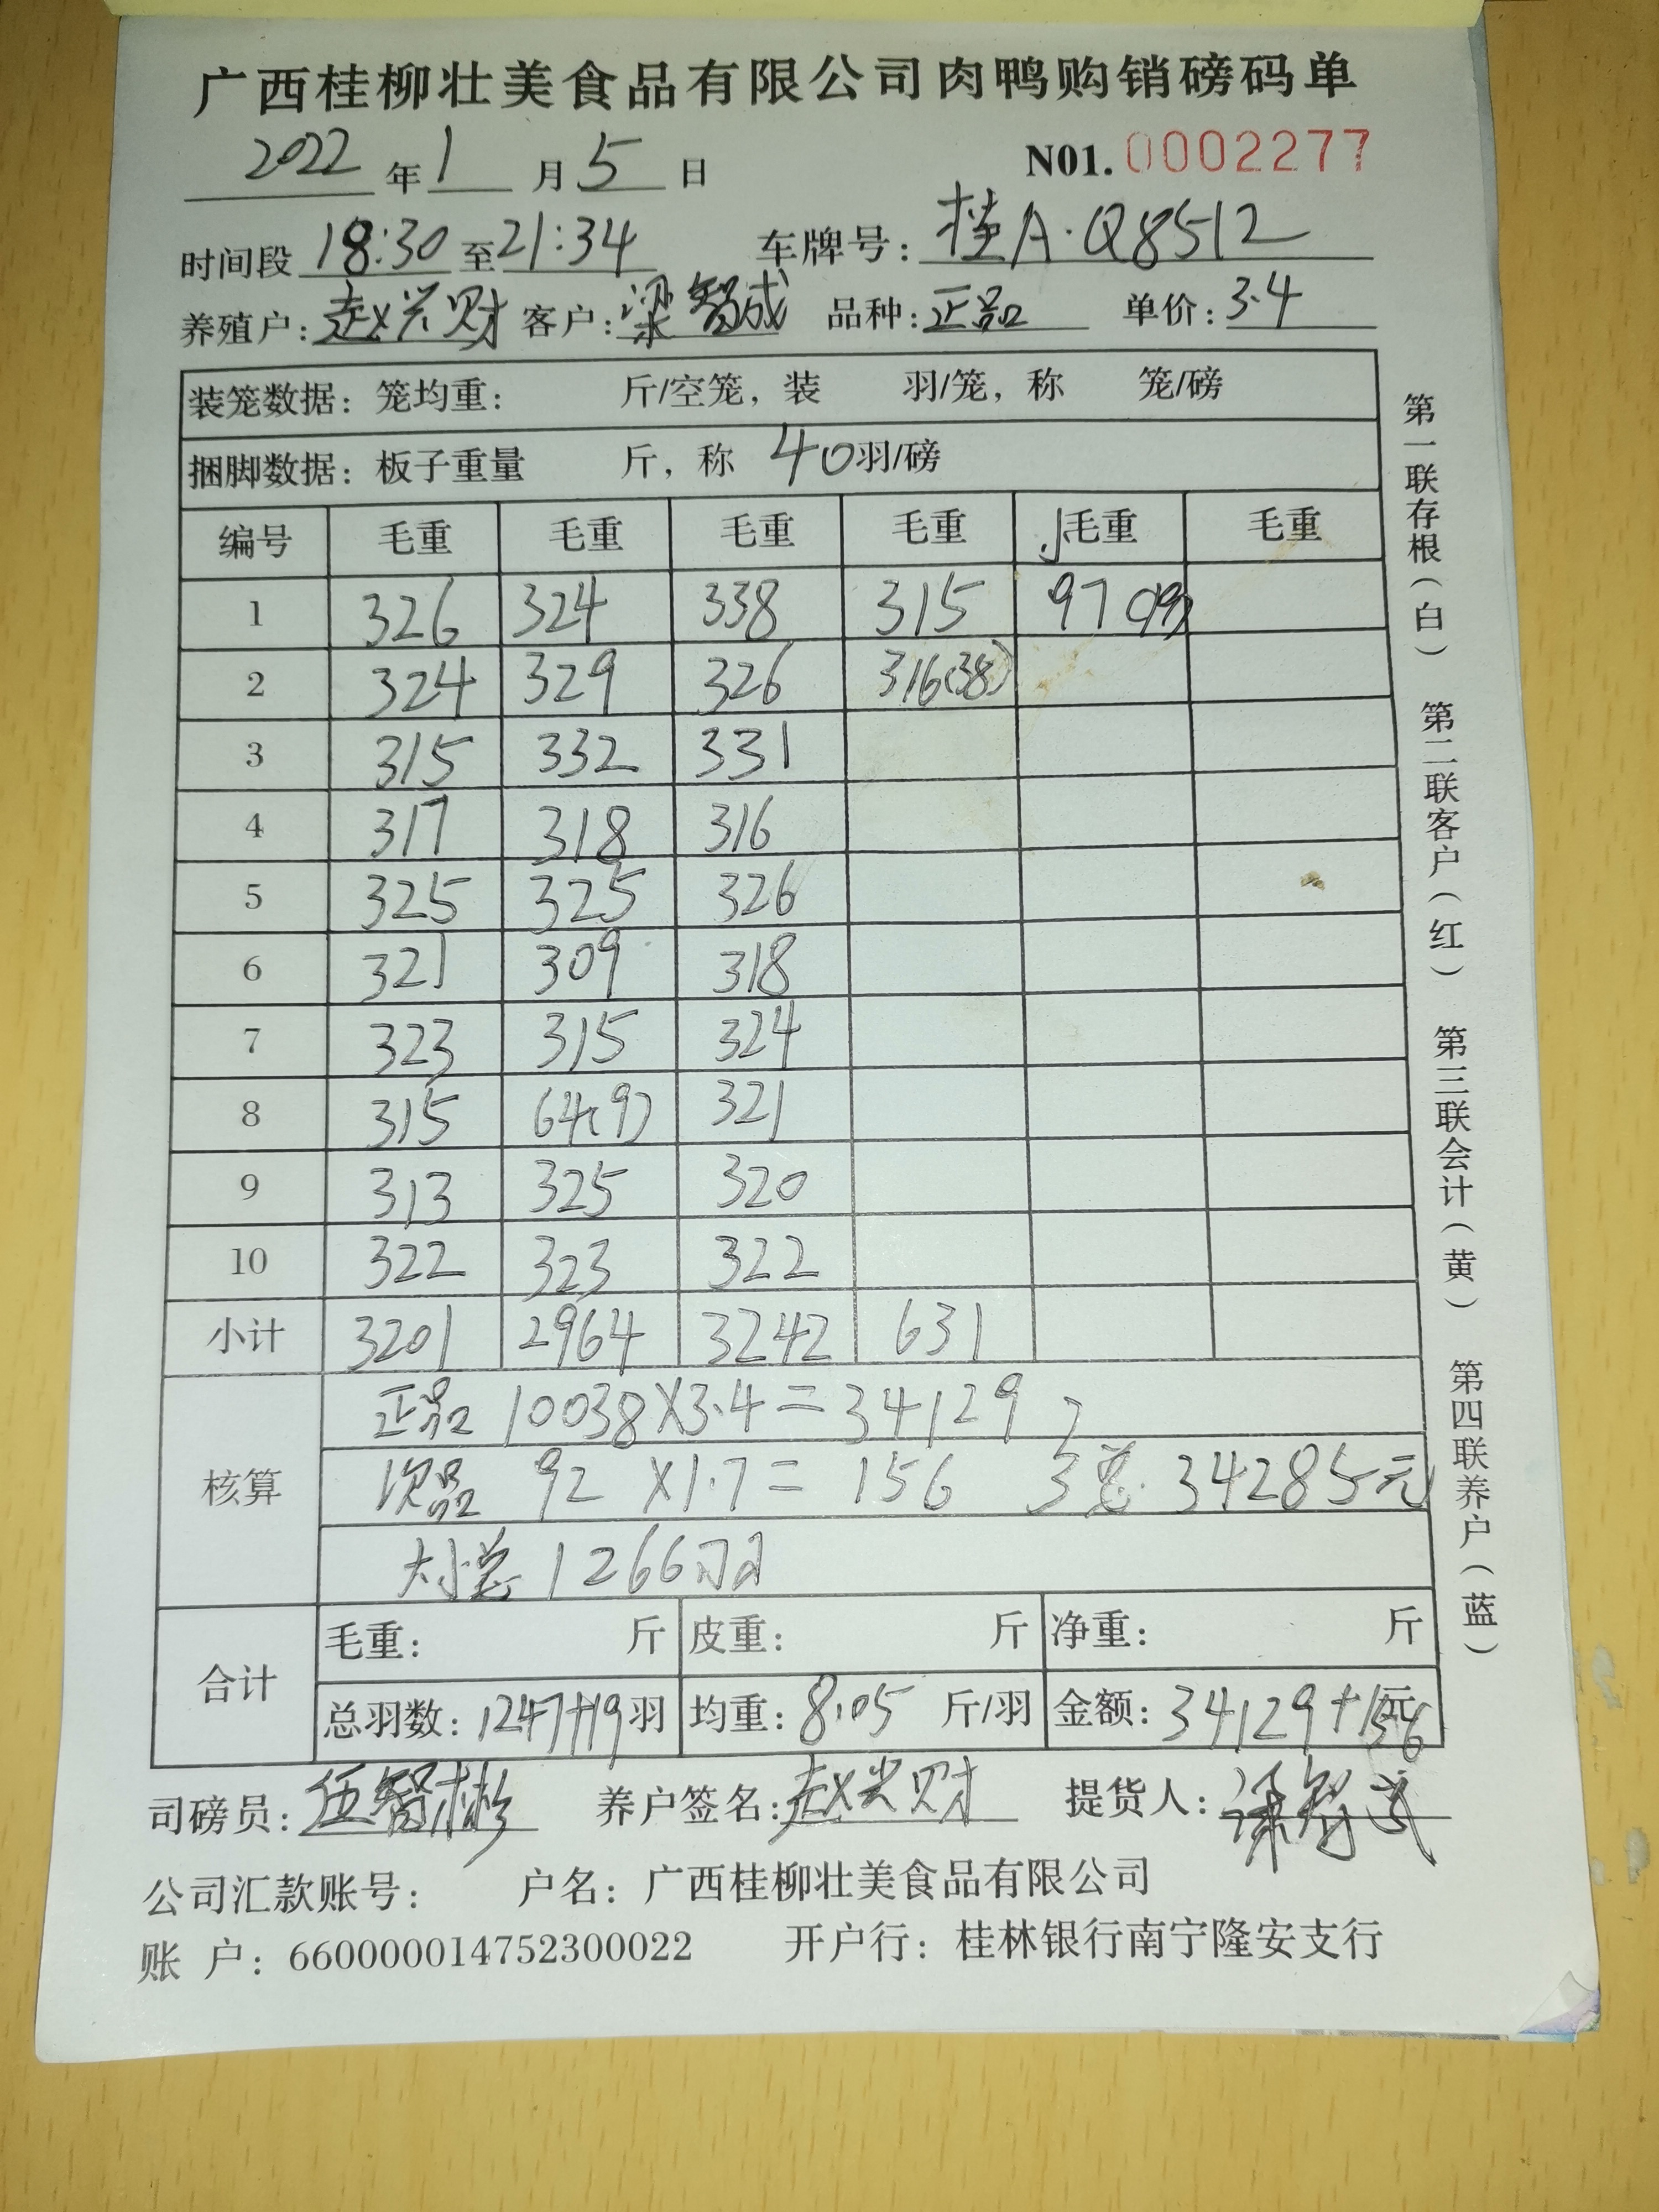 广西桂柳壮美食品有限公司肉鸭购销磅码单
2022年1月5日 N01.0002277
时间段18:30至21:34 车牌号:桂A·Q8512
养殖户:赵兴财 客户:梁智成 品种:正品 单价:3.4
装笼数据:笼均重: 斤/空笼,装 羽/笼,称 笼/磅
捆脚数据:板子重量 斤,称 40羽/磅
编号 毛重 毛重 毛重 毛重 毛重 毛重
1 326 324 338 315 97(19)
2 324 329 326 316(38)
3 315 332 331
4 317 318 316
5 325 325 326
6 321 309 318
7 323 315 324
8 315 64(9) 321
9 313 325 320
10 322 323 322
小计 3201 2964 3242 631
核算
正品 10038×3.4=34129
次品 92×1.7=156 总 34285元
大小总 1266羽
合计
毛重: 斤 皮重: 斤 净重: 斤
总羽数:1247+19羽 均重:8.05斤/羽 金额:34129+156元
司磅员:伍智彬 养户签名:赵兴财 提货人:梁智成
公司汇款账号: 户名:广西桂柳壮美食品有限公司
账 户:660000014752300022 开户行:桂林银行南宁隆安支行
第一联存根(白) 第二联客户(红) 第三联会计(黄) 第四联养户(蓝)